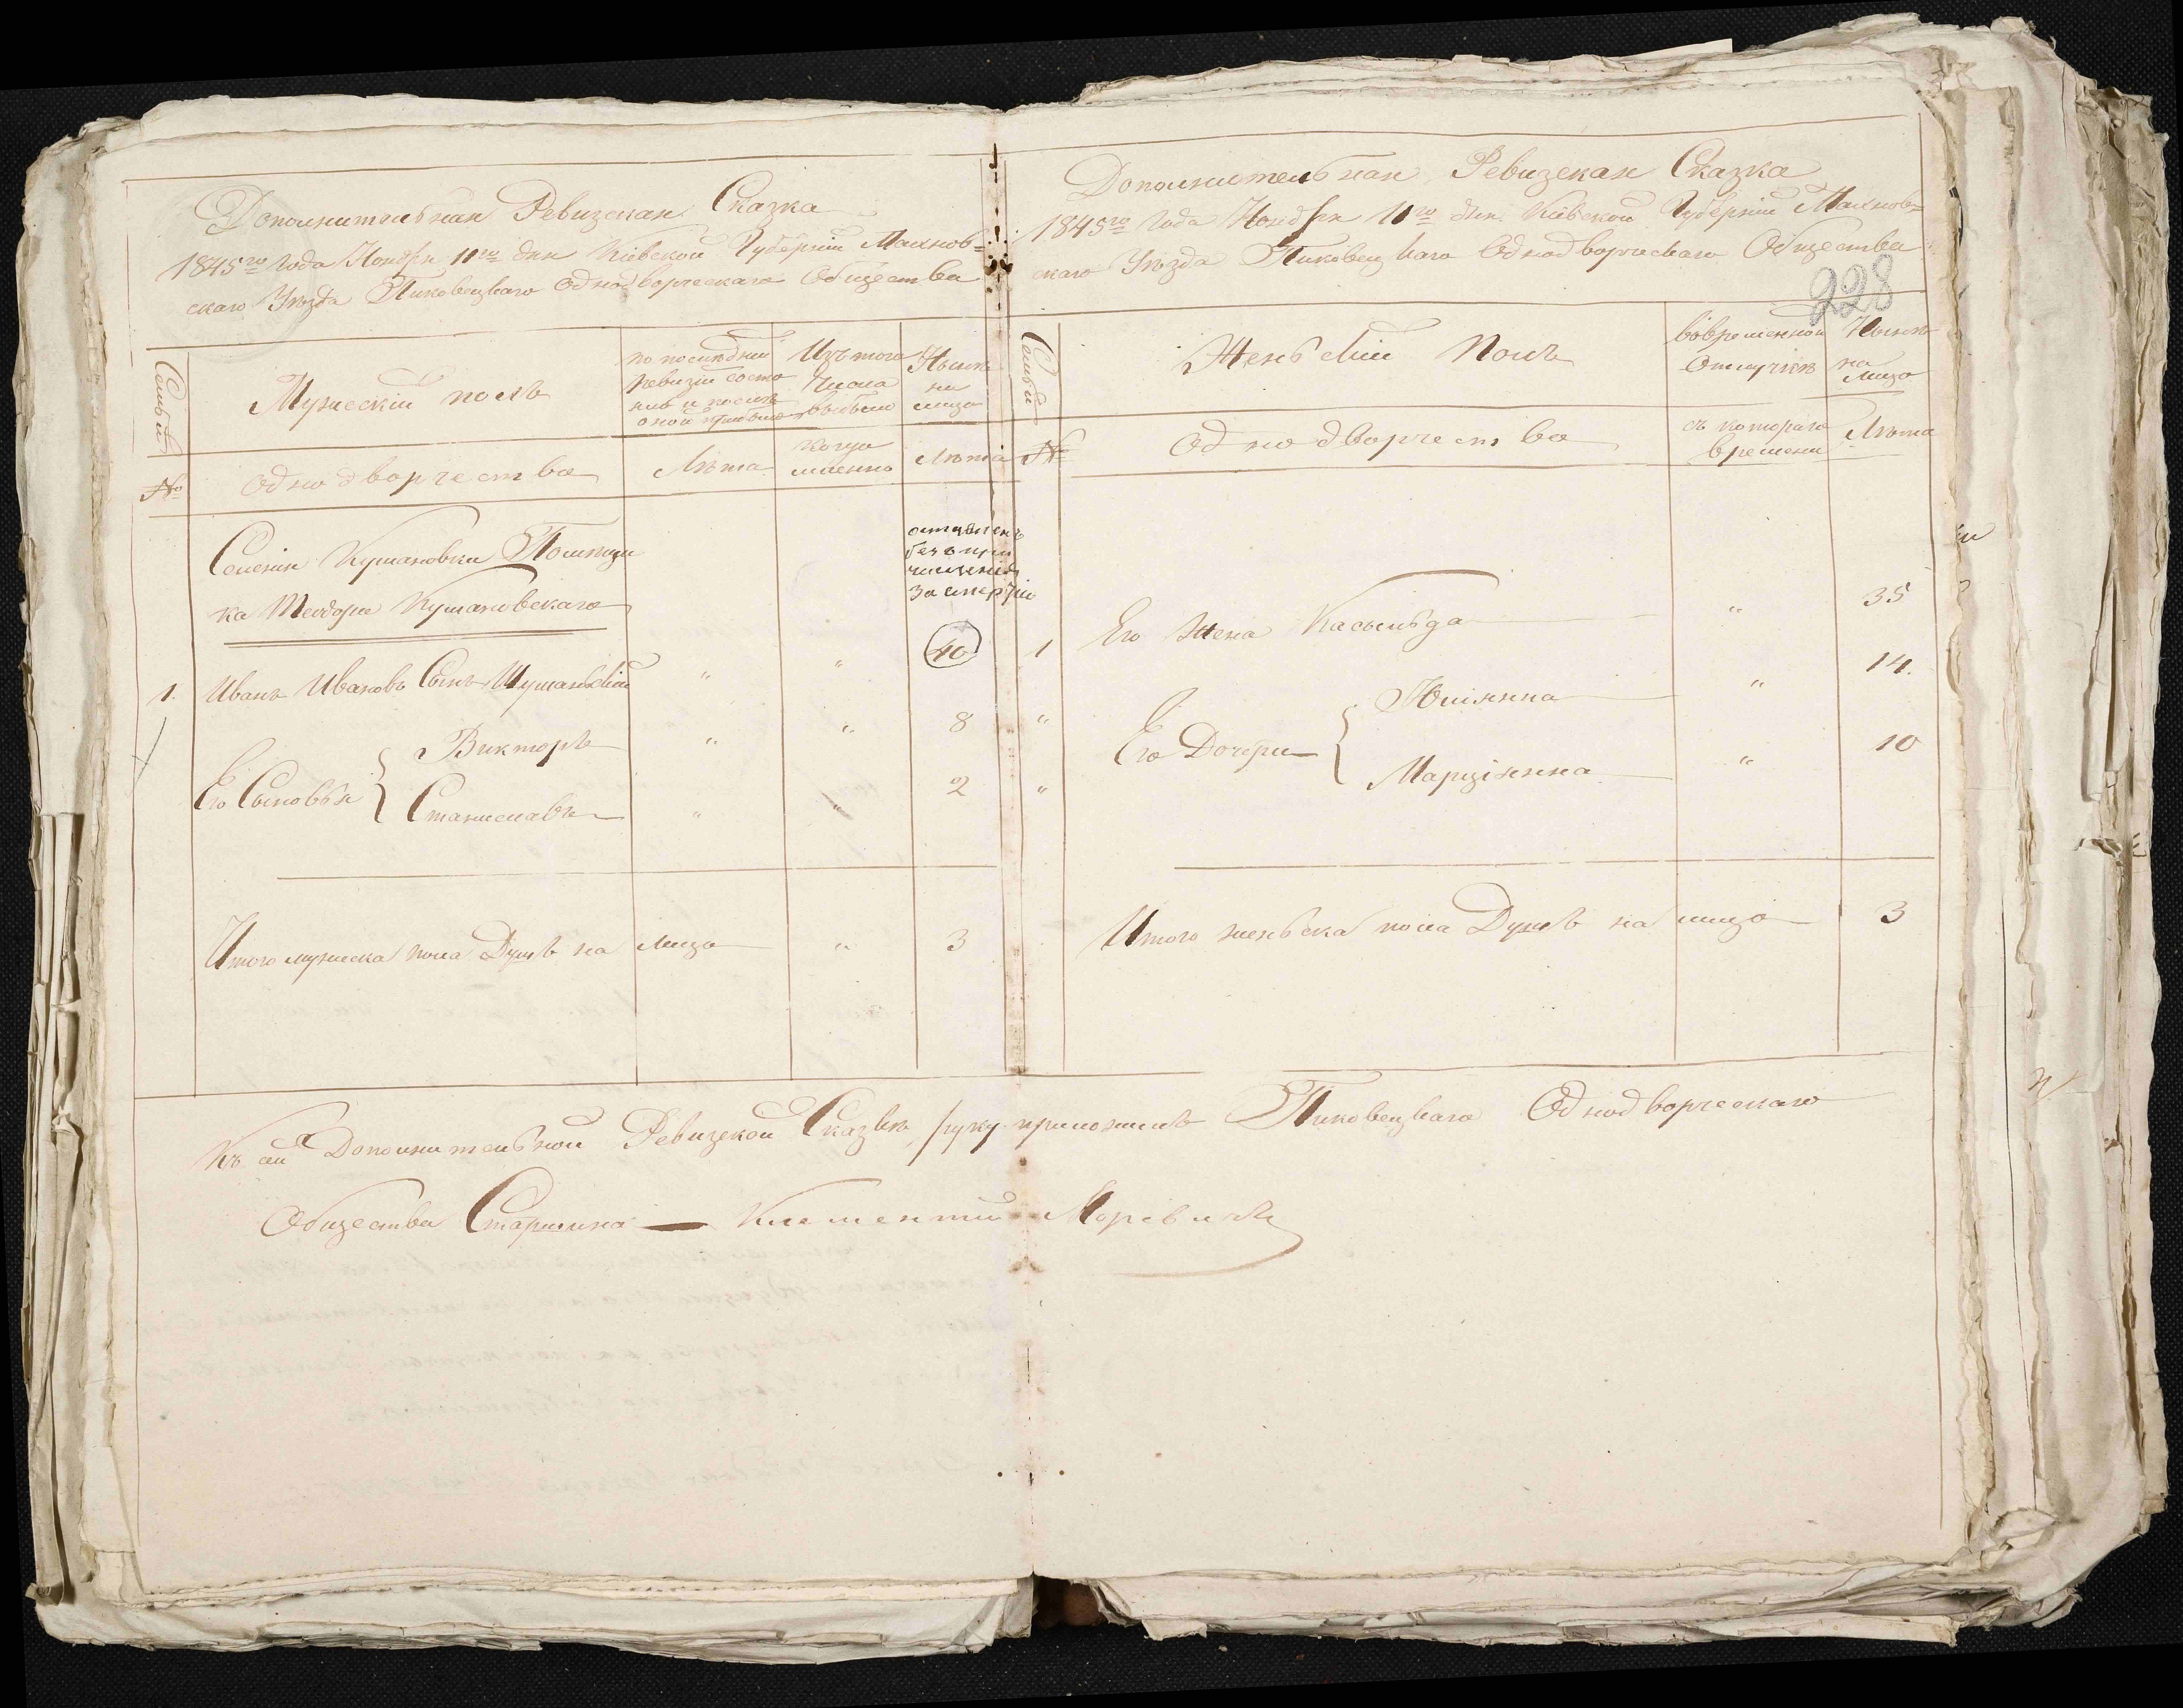 Дополнительная Ревизская Сказка
1845го Года Ноября 11го дня Кіевской Губерніи Махнов=
скаго Уѣзда Пиковецкаго Однодворческаго Общества
Семьи
Мужескій полъ
по последней
ревизіи состо
яло и послѣ
оной прибыло
Изъ того
Числа
выбыло
Нынѣ
на
лицо
№
Однодворчества
Лѣта
Когда
именно
Лѣта
Селенія Кумановки Помѣщи
ка Теодора Кумановскаго
оставленъ
безъ при
численія
за смертію
1. Иванъ Ивановъ Сынъ " " 40
Его Сыновья { Викторъ " " 8
Станиславъ " " 2
Итого мужеска пола Душъ на лицо " 3
Дополнительная Ревизская Сказка
1845го Года Ноября 11го дня Кіевской Губерніи Махнов=
скаго Уѣзда Пиковецкаго Однодворческаго Общества
228
Семьи
Женьскій Полъ
Вовременной
Отлучкѣ
Нынѣ
на
лицо
№
Однодворчества
съ котораго
времени
Лѣта
1 Его Жена Касыльда " 35
" Его Дочери { Юліянна " 14.
" Марціянна " 10
Итого женьска пола Душъ на лицо 3
Къ сей Дополнительной Ревизской Сказкѣ руку приложилъ Пиковецкаго Однодворческаго
Общества Старшина — Климентій